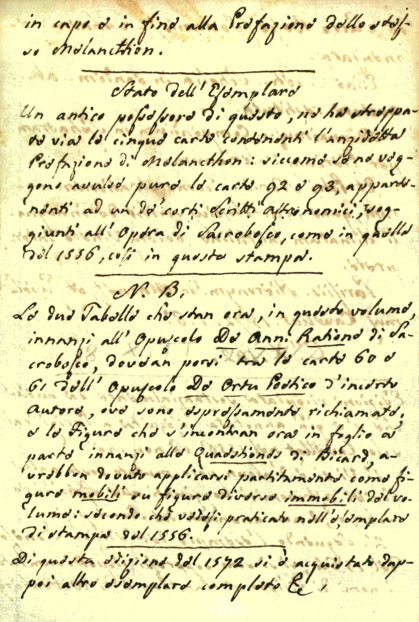 in capo e in fine alla Prefazione dello stes-
so Melancthon.
Stato dell' Esemplare
Un antico possessore di questo, ne ha strappa-
te via le cinque carte contenenti l'anzidetta
Prefazione di Melancthon: siccome se ne veg-
gono avulse pure le carte 92 e 93, apparte-
nenti ad un de' corti Scritti Astronomici, sog-
giunti all' Opera di Sacrobosco, come in quella
del 1556, così in questa stampa.
N. B.
Le due Tabelle che stan ora, in questo volume,
innanzi all' Opuscolo De Anni Ratione di Sa-
crobosco, dovean porsi tra le carte 60 e
61 dell' Opuscolo De Ortu Poetico d'incerto
Autore, ove sono espressamente richiamate,
e le Figure che s'incontran ora in foglio a
parte innanzi alle Quaestiones di Bicard, a-
vrebber dovuto applicarsi partitamente come fi-
gure mobili su figure diverse immobili del vo-
lume: secondo che vedesi praticato nell' esemplare
di stampa del 1556.
Di questa edizione del 1572 si è acquistato dap-
poi altro esemplare completo